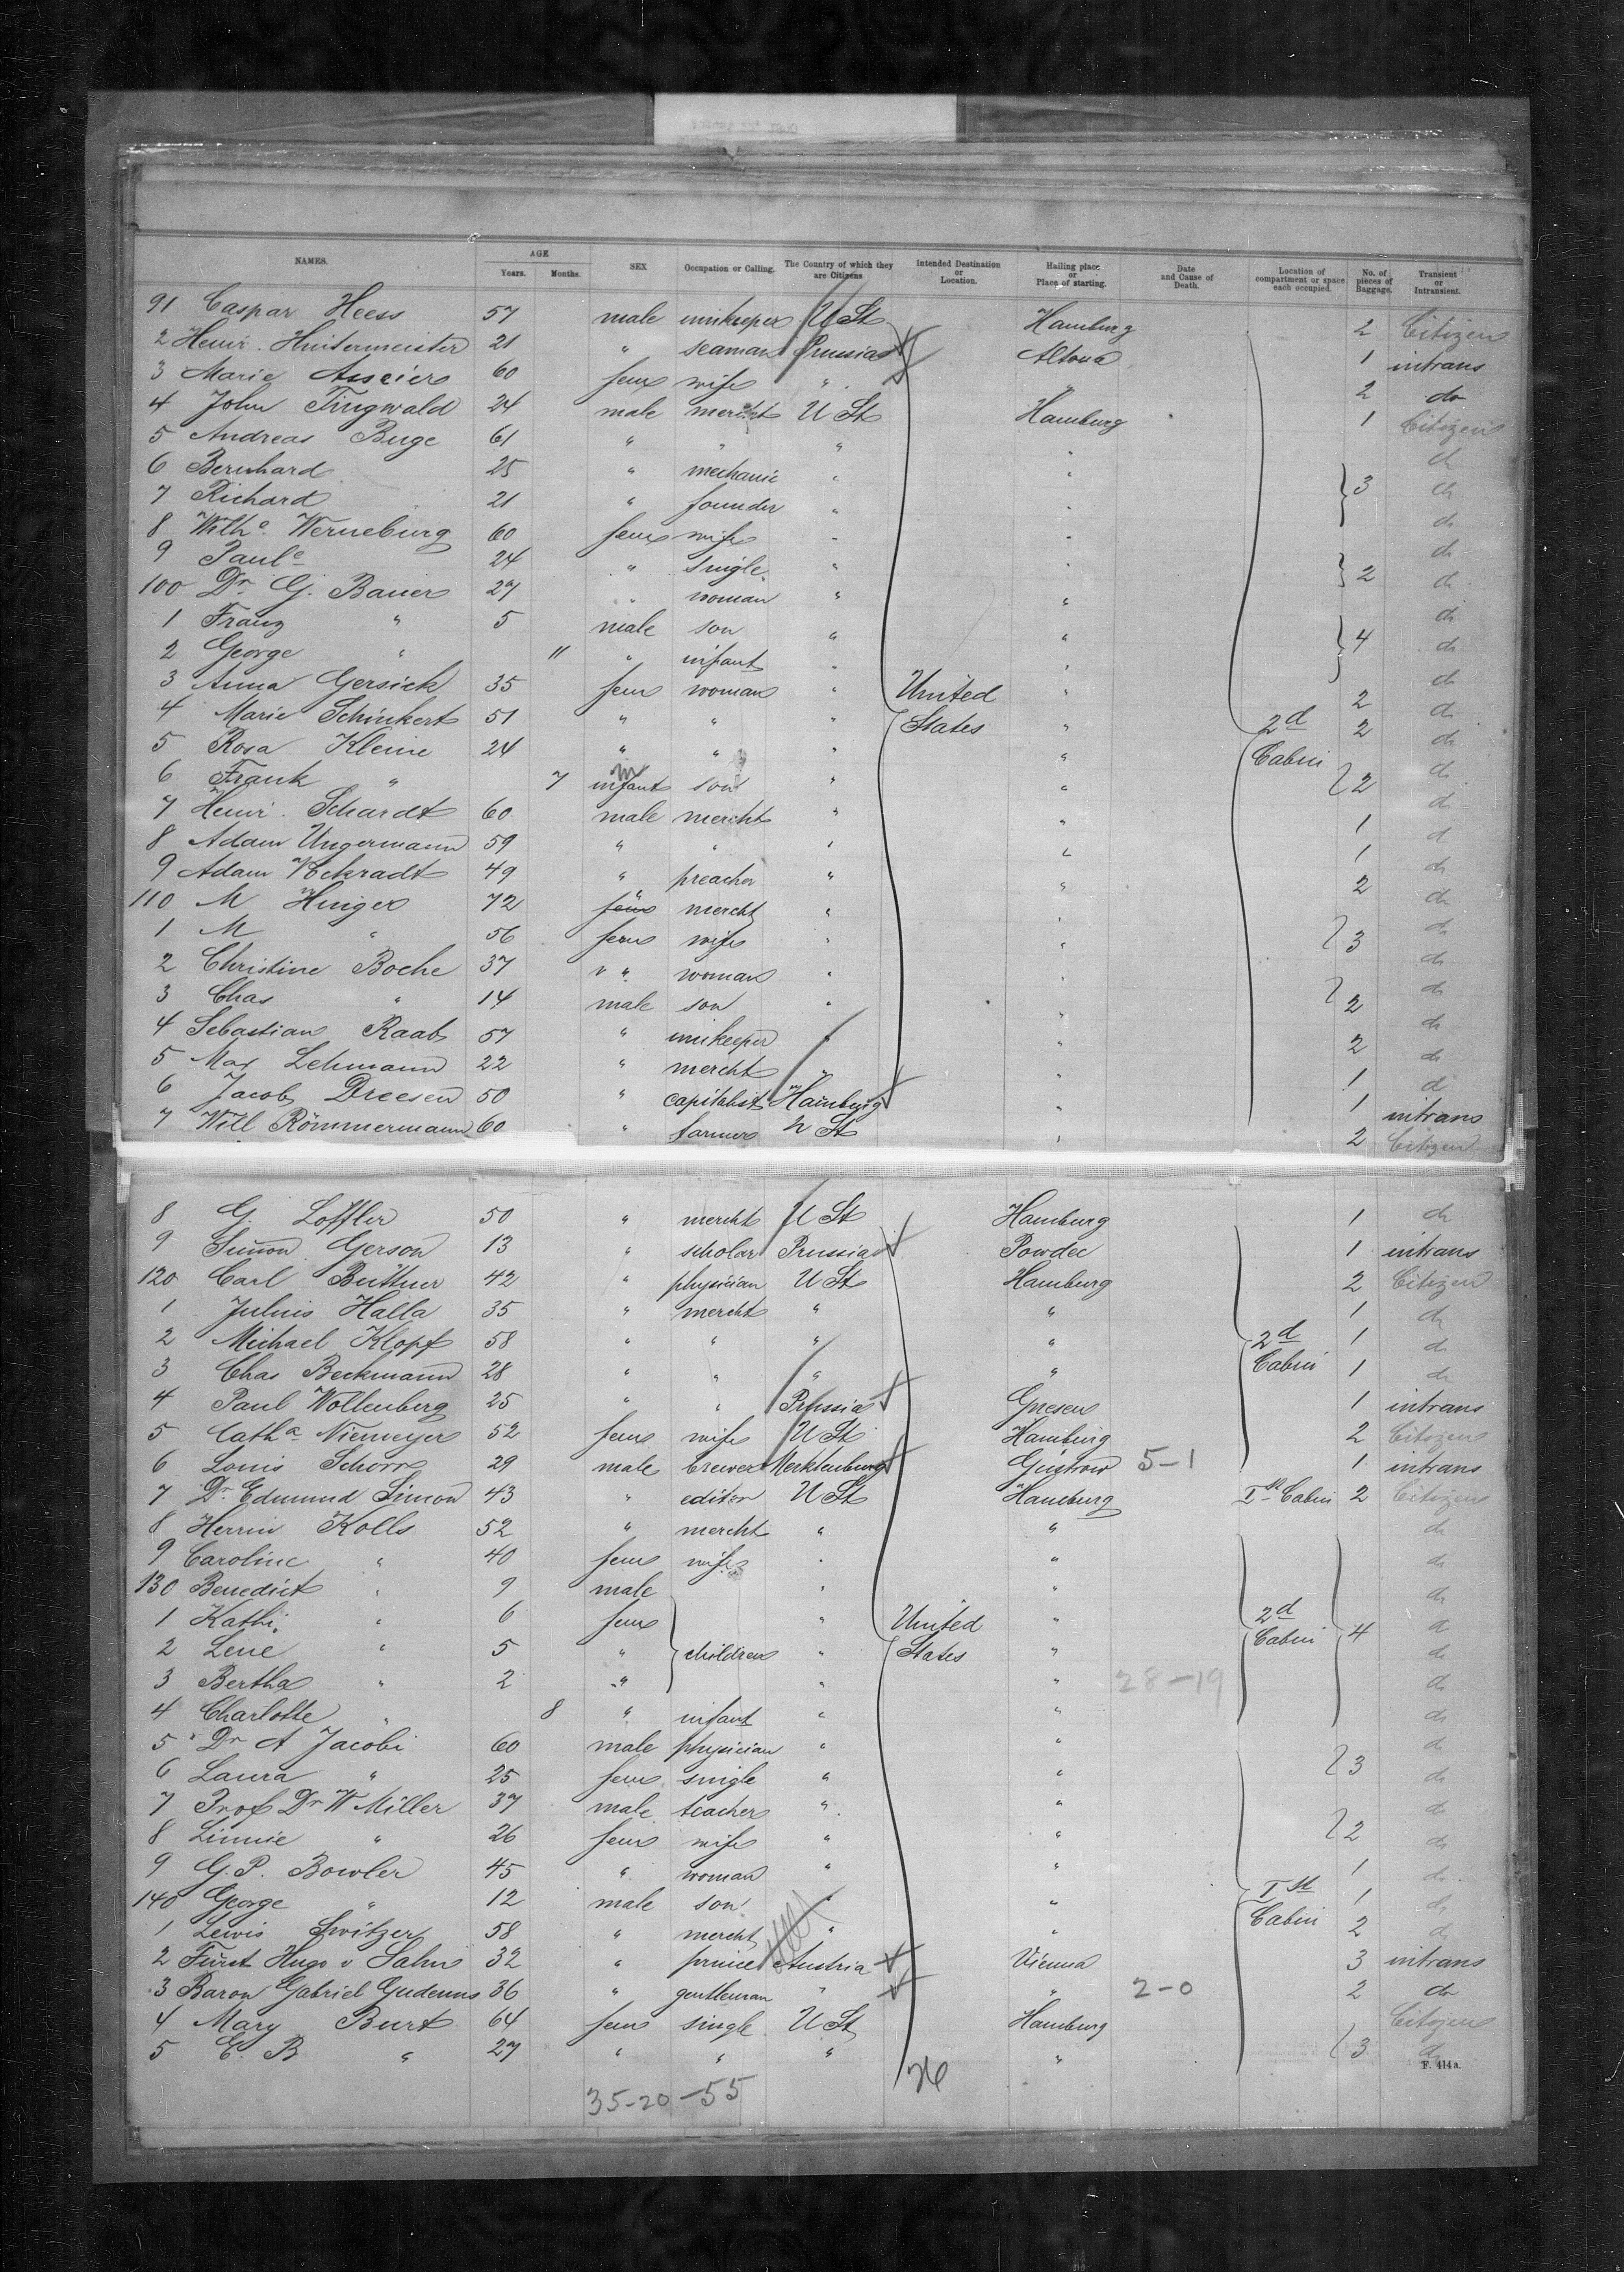 NAMES. AGE Years. Months. SEX Occupation or Calling. The Country of which they are Citizens Intended Destination or Location. Hailing place or Place of starting. Date and Cause of Death. Location of compartment or space each occupied. No. of pieces of Baggage. Transient or Intransient.
91 Caspar Heess 57 male innkeeper U St Hamburg 2 Citizen
2 Heinr. Hintermeister 21 " seaman Prussia Altona 1 intrans
3 Marie 60 fem wife " " 2 do
4 John Tingwald 24 male mercht U St Hamburg 1 Citizen
5 Andreas Buge 61 " " " " do
6 Bernhard 25 " mechanic " " 3 do
7 Richard 21 " founder " " do
8 Wilhe Werneburg 60 fem wife " " do
9 Paule 24 " single " " 2 do
100 Dr. G. Bauer 27 " woman " " do
1 Franz " 5 male son " " do
2 George " 11 " infant " " 4 do
3 Anna Gersick 35 fem woman " United " 2 do
4 Marie Schinkert 51 " " " States " 2d 2 do
5 Rosa Kleine 24 " " " " Cabin do
6 Frank " 7 m infant son " " 2 do
7 Heinr. Schardt 60 male mercht " " 1 do
8 Adam Ungermann 59 " " " " 1 do
9 Adam Eckradt 49 " preacher " " 2 do
110 M Hinger 72 fem mercht " " do
1 M " 56 fem wife " " 3 do
2 Christine Boche 37 " woman " " do
3 Chas " 14 male son " " 2 do
4 Sebastian Raab 57 " innkeeper " " 2 do
5 Max Lehmann 22 " mercht " " 1 do
6 Jacob Dreesen 50 " capitalist Hamburg " 1 intrans
7 Will Römmermann 60 " farmer U St " 2 Citizen
8 G. Loffler 50 " mercht U St Hamburg 1 do
9 Simon Gerson 13 " scholar Prussia Powdec 1 intrans
120 Carl Büttner 42 " physician U St Hamburg 2 Citizen
1 Julius Halla 35 " mercht " " 1 do
2 Michael Klopf 58 " " " " 2d 1 do
3 Chas Beckmann 28 " " " " Cabin 1 do
4 Paul Wollenberg 25 " " Prussia Gnesen 1 intrans
5 Catha Niemeyer 52 fem wife U St Hamburg 2 Citizen
6 Louis Schorr 29 male brewer Mecklenburg Güstrow 5-1 1 intrans
7 Dr. Edmund Simon 43 " editor U St Hamburg Ist Cabin 2 Citizen
8 Herrm Kolls 52 " mercht " " do
9 Caroline " 40 fem wife " " do
130 Benedict " 9 male " " do
1 Kathi " 6 fem " United " 2d do
2 Lene " 5 " children " States " Cabin 4 do
3 Bertha " 2 " " " 28-19 do
4 Charlotte " 8 " infant " " do
5 Dr A Jacobi 60 male physician " " do
6 Laura " 25 fem single " " 3 do
7 Prof Dr W Miller 37 male teacher " " do
8 Linnie " 26 fem wife " " 2 do
9 G. P. Bowler 45 " woman " " 1 do
140 George " 12 male son " " Ist 1 do
1 Lewis Switzer 58 " mercht " " Cabin 2 do
2 Fürst Hugo v Salm 32 " prince Austria Vienna 3 intrans
3 Baron Gabriel Gudenus 36 " gentleman " " 2-0 2 do
4 Mary Burt 64 fem single U St Hamburg Citizen
5 E. B " 27 " " " " 3 do
F. 414a.
35-20-55